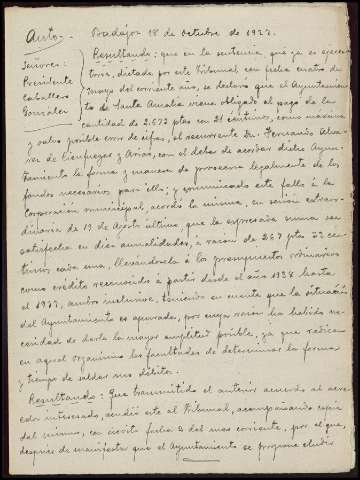 Auto.- Badajoz 18 de Octubre de 1927.
Señores: Resultando: que en la sentencia que ya es ejecu-
Presidente toria, dictada por este Tribunal con fecha cuatro de
Caballero mayo del corriente año, se declaró que el Ayuntamien-
González to de Santa Amalia viene obligado al pago de la
cantidad de 2.672 ptas con 21 céntimos, como máxima
y salvo posible error de cifras, al recurrente Dn. Fernando Alva-
rez de Cienfuegos y Arias, con el deber de acordar dicho Ayun-
tamiento la forma y manera de proveerse legalmente de los
fondos necesarios para ello; y comunicado este fallo a la
Corporación municipal, acordó la misma, en sesión extraor-
dinaria de 19 de Agosto último, que la expresada suma sea
satisfecha en diez anualidades, a razón de 267 ptas 22 cén-
timos cada una, llevándosela a los presupuestos ordinarios
como crédito reconocido a partir desde el año 1928 hasta
el 1937, ambos inclusive, teniendo en cuenta que la situación
del Ayuntamiento es apurada, por cuya razón ha habido ne-
cesidad de darle la mayor amplitud posible, ya que radica
en aquel organismo las facultades de determinar la forma
y tiempo de saldar sus débitos.
Resultando: Que transmitido el anterior acuerdo al acre-
edor interesado, acudió este al Tribunal, acompañando copia
del mismo, con escrito fecha 2 del mes corriente, por el que,
despues de manifestar que el Ayuntamiento se propone eludir